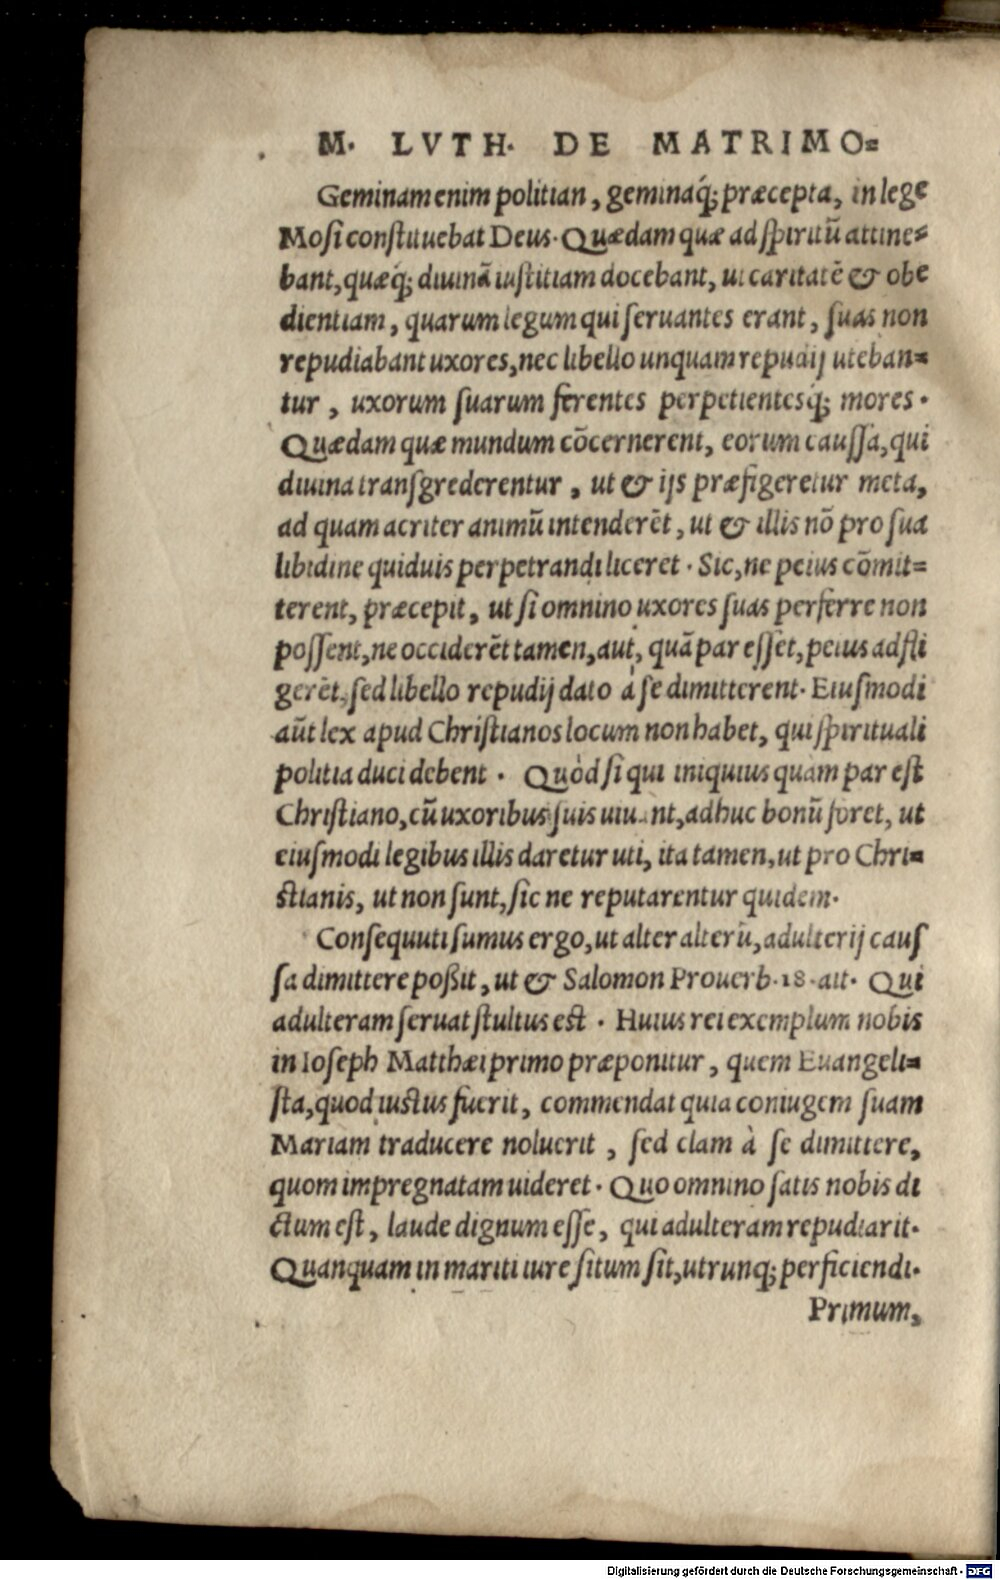 M. LVTH. DE MATRIMO=
Geminam enim politian, geminaq́; præcepta, in lege
Mosi constituebat Deus. Quædam quæ ad spiritū attine=
bant, quæq́; diuinā iustitiam docebant, ut caritatē & obe
dientiam, quarum legum qui seruantes erant, suas non
repudiabant uxores, nec libello unquam repudij uteban=
tur, uxorum suarum ferentes perpetientesq́; mores.
Quædam quæ mundum cōcernerent, eorum caussa, qui
diuina transgrederentur, ut & ijs præfigeretur meta,
ad quam acriter animū intenderēt, ut & illis nō pro sua
libidine quiduis perpetrandi liceret. Sic, ne peius cōmit=
terent, præcepit, ut si omnino uxores suas perferre non
possent, ne occiderēt tamen, aut, quā par esset, peius adfli
gerēt, sed libello repudij dato à se dimitterent. Eiusmodi
aūt lex apud Christianos locum non habet, qui spirituali
politia duci debent. Quòd si qui iniquius quam par est
Christiano, cū uxoribus suis uiuunt, adhuc bonū foret, ut
eiusmodi legibus illis daretur uti, ita tamen, ut pro Chri=
stianis, ut non sunt, sic ne reputarentur quidem.
Consequuti sumus ergo, ut alter alterū, adulterij caus
sa dimittere poßit, ut & Salomon Prouerb. 18. ait. Qui
adulteram seruat stultus est. Huius rei exemplum nobis
in Ioseph Matthæi primo præponitur, quem Euangeli=
sta, quod iustus fuerit, commendat quia coniugem suam
Mariam traducere noluerit, sed clam à se dimittere,
quom impregnatam uideret. Quo omnino satis nobis di
ctum est, laude dignum esse, qui adulteram repudiarit.
Quanquam in mariti iure situm sit, utrunq; perficiendi.
Primum,
Digitalisierung gefördert durch die Deutsche Forschungsgemeinschaft - DFG